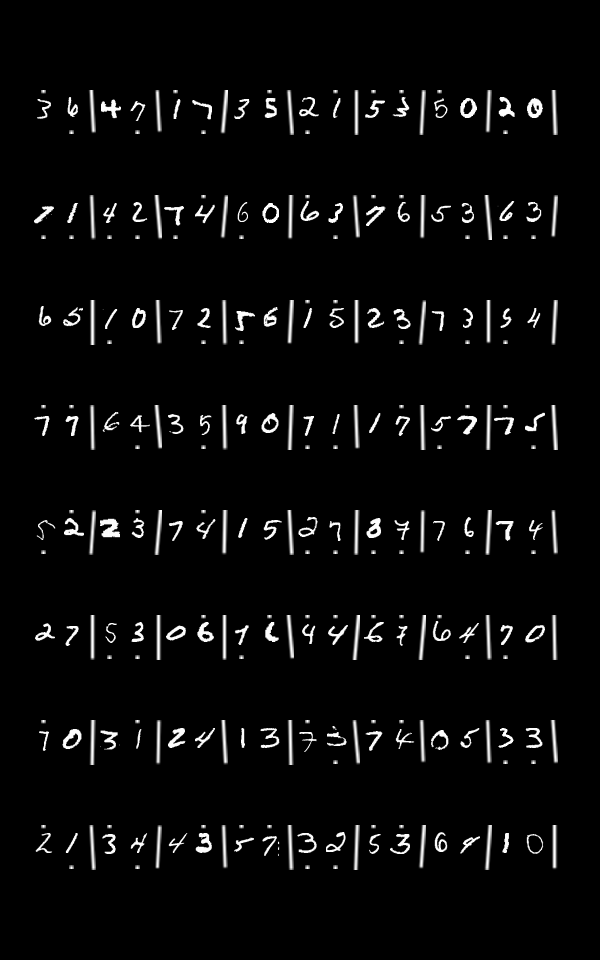 3 6 | 4 7 | 1 7 | 3 5 | 2 1 | 5 3 | 5 0 | 2 0 |
7 1 | 4 2 | 7 4 | 6 0 | 6 3 | 7 6 | 5 3 | 6 3 |
6 5 | 1 0 | 7 2 | 5 6 | 1 5 | 2 3 | 7 3 | 5 4 |
7 7 | 6 4 | 3 5 | 4 0 | 7 1 | 1 7 | 5 7 | 7 5 |
5 2 | 2 3 | 7 4 | 1 5 | 2 7 | 3 7 | 7 6 | 7 4 |
2 7 | 5 3 | 0 6 | 1 6 | 4 4 | 6 7 | 6 4 | 7 0 |
7 0 | 3 1 | 2 4 | 1 3 | 7 3 | 7 4 | 0 5 | 3 3 |
2 1 | 3 4 | 4 3 | 5 7 | 3 2 | 5 3 | 6 4 | 1 0 |